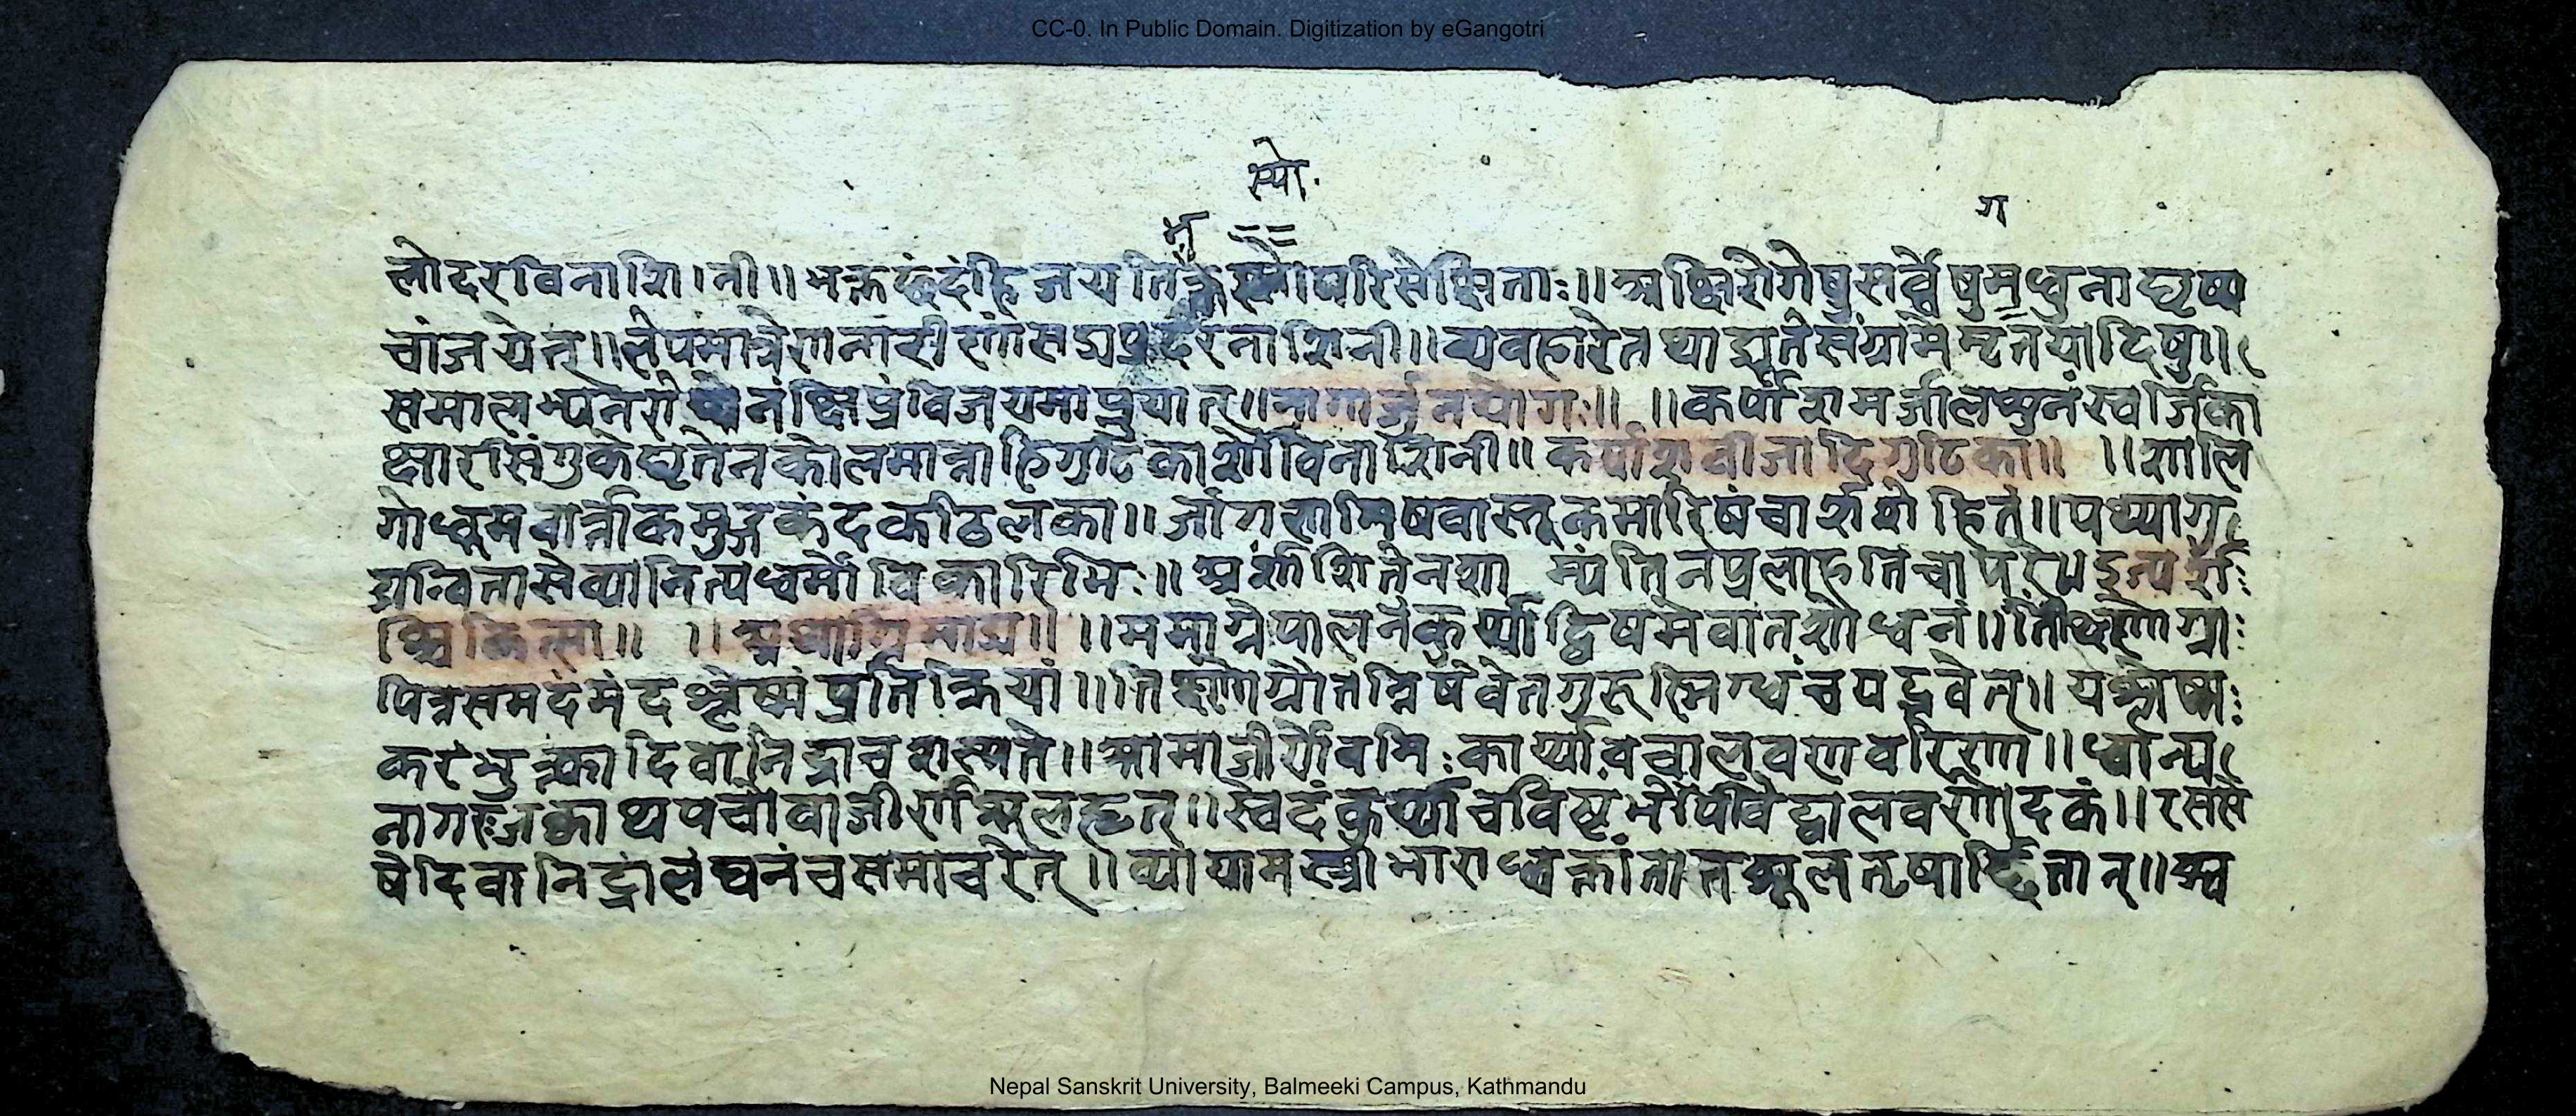 CC-0. In Public Domain. Digitization by eGangotri
स्यो.
ग
लोदरविनाशि।नी॥ भक्तछंदंहि जययति परिसेञ्चिताः॥ अक्षिरोगेषुसर्व्वेषुमधुनाघृष्य
चांजयेत्॥लेपमात्रेणनारीणांसद्यप्रदरनाशिनी॥व्यवहारेतथाद्यूतेसंग्रामे दिषु॥
समालभ्यनरो नंक्षिप्रंविजयमाप्नुयात्॥नागार्जुनयोगः॥ ॥कर्पाशमर्जालषुनंस्वर्जिका
क्षारसिंगुकेघृतेनकोलमात्राहिगुटिकार्शोविनाशिनी॥कर्पाशवीजादिगुटिका॥ ॥शालि
गोधुमवार्त्ताकमुद्गकंदकठिलका॥जांगलामिषवास्तूकमारिषंचार्शशेहितं॥पथ्यागु
द्यन्वितासेव्यानित्यध्वर्मोविकारिभिः॥ अर्शाशितेनशा म्यंतिनप्रलाहतिचापरे॥इत्यर्श
श्चिकित्सा॥ ॥अथाग्निमाद्य॥ ॥समाग्नेपालनंकुर्य्याद्विषमेवातशोधनं॥तिक्ष्णेग्नौ
पित्तसमदंमंदश्लेष्मंप्रतिक्रियां॥तिक्ष्णेग्नौतन्निषेवेतगुरुस्निग्धंचपद्भवेत्॥यश्लेष्म
करंभुक्त्वादिवानिद्राचशस्यते॥आमाजीर्णेवमिःकार्य्यावचालवणवारिणा॥धान्य
नागरजक्वाथपचोवाजीर्णशूलहृत्॥स्वेदंकुर्य्याचविष्टंभेपिवेद्वालवणोदकं॥रसशे
षेदिवानिद्रांलंघनंचसमाचरेत्॥व्यायामस्त्रीभाराध्वक्लांता शूलतृषार्द्दितान्॥अ
Nepal Sanskrit University, Balmeeki Campus, Kathmandu